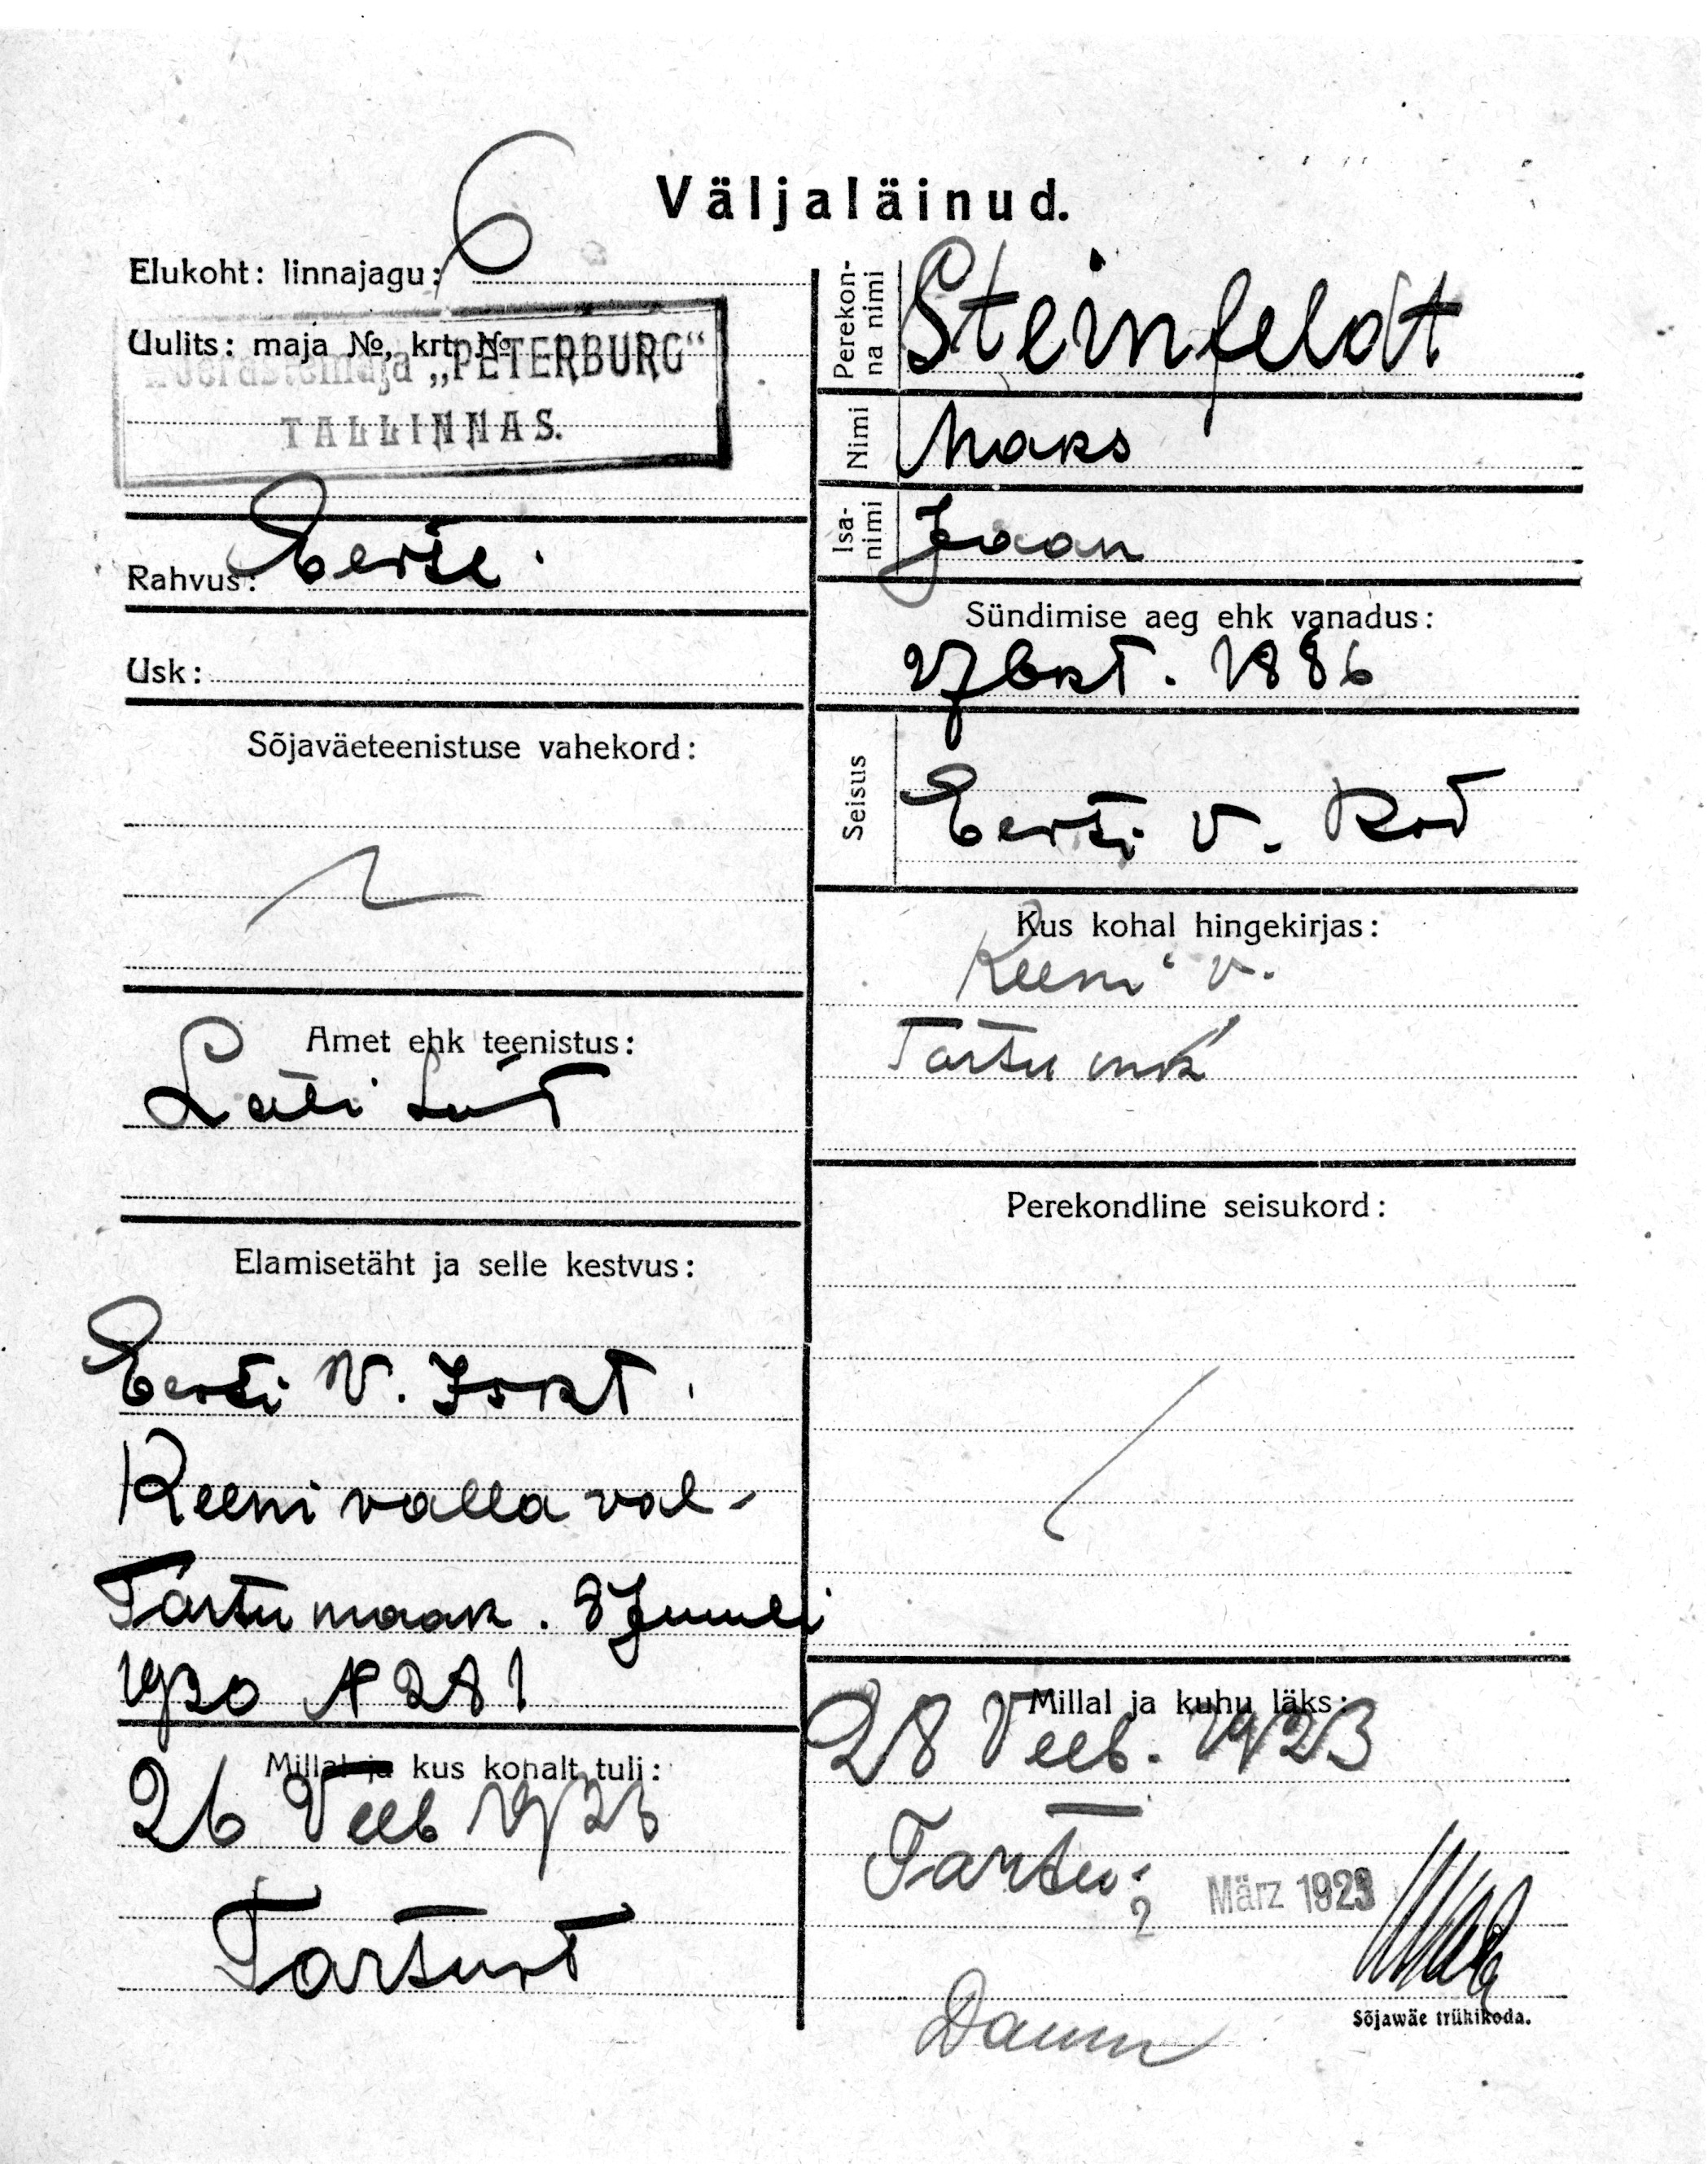 Väljaläinud.
Elukoht: linnajagu: 6
Uulits: maja №, krt. №
Võerastemaja „PETERBURG“
TALLINNAS.
Rahvus: Eesti.
Usk:
Sõjaväeteenistuse vahekord:
Amet ehk teenistus:
Elamisetäht ja selle kestvus:
Eesti V.
Keeni valla val-
Tartu maak. 8 Juuli
1920 № 281
Millal ja kus kohalt tuli:
26 Veeb 1923
Tartust
Perekon-
na nimi
Steinfeldt
Nimi
Maks
Isa-
nimi
Jaan
Sündimise aeg ehk vanadus:
27 Okt. 1886
Seisus
Eesti V. Kod
Kus kohal hingekirjas:
Keeni v.
Tartu mk
Perekondline seisukord:
Millal ja kuhu läks:
28 Veeb. 1923
Tartu.
2 März 1923
Sõjawäe trükikoda.